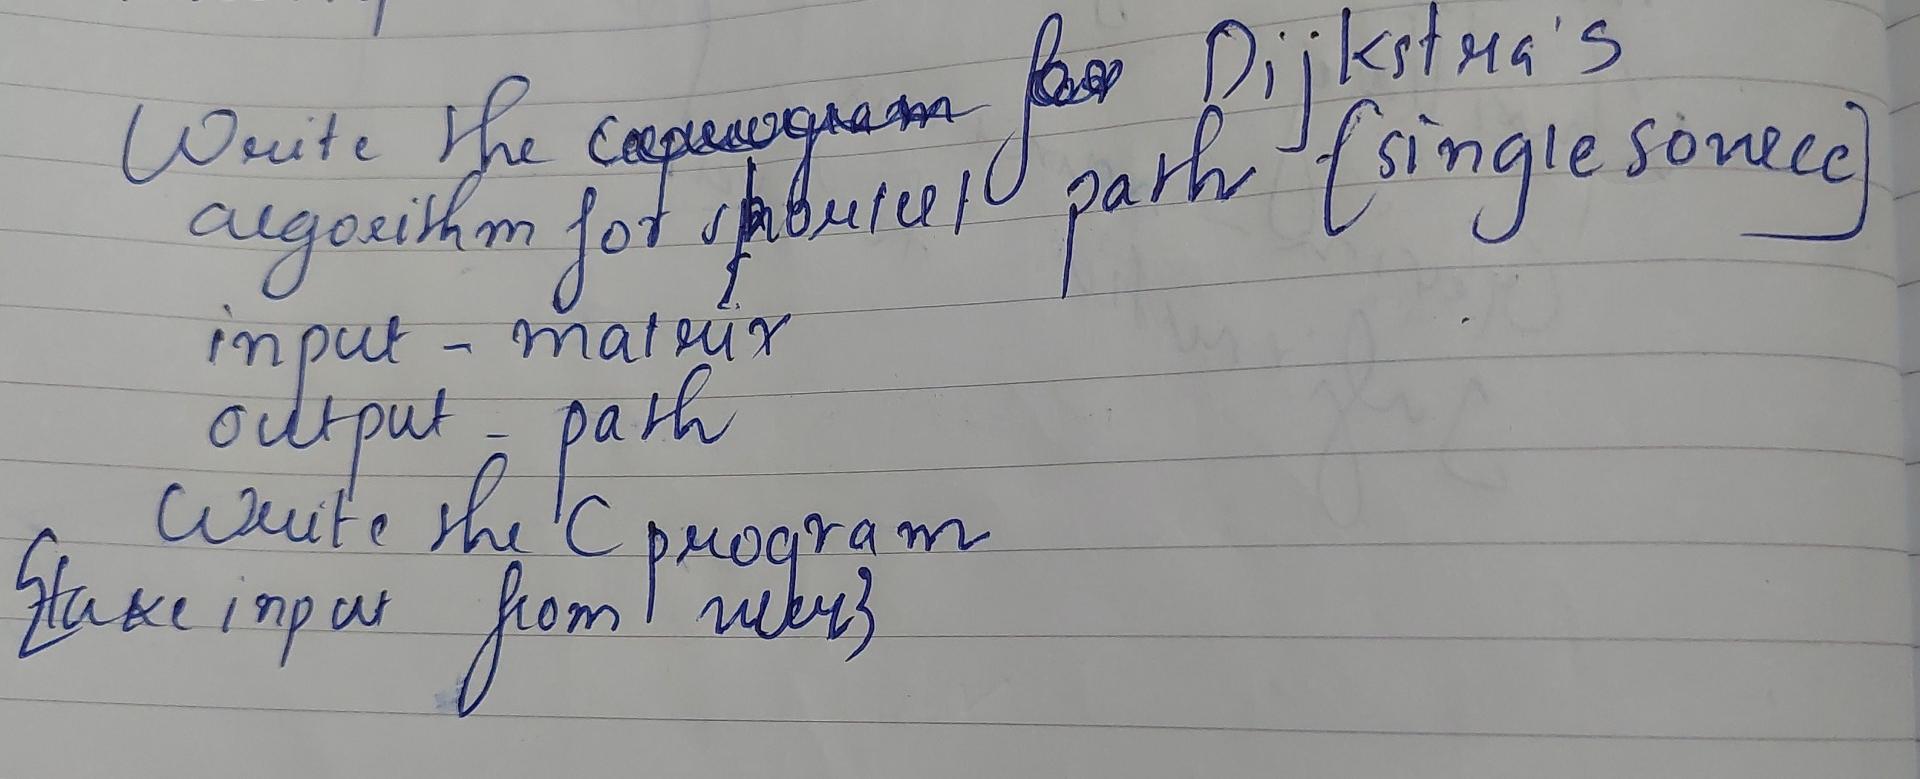 Write the program for Dijkstra's
algorithm for shortest path {single source}
input - matrix
output - path
Write the C program
{take input from user}